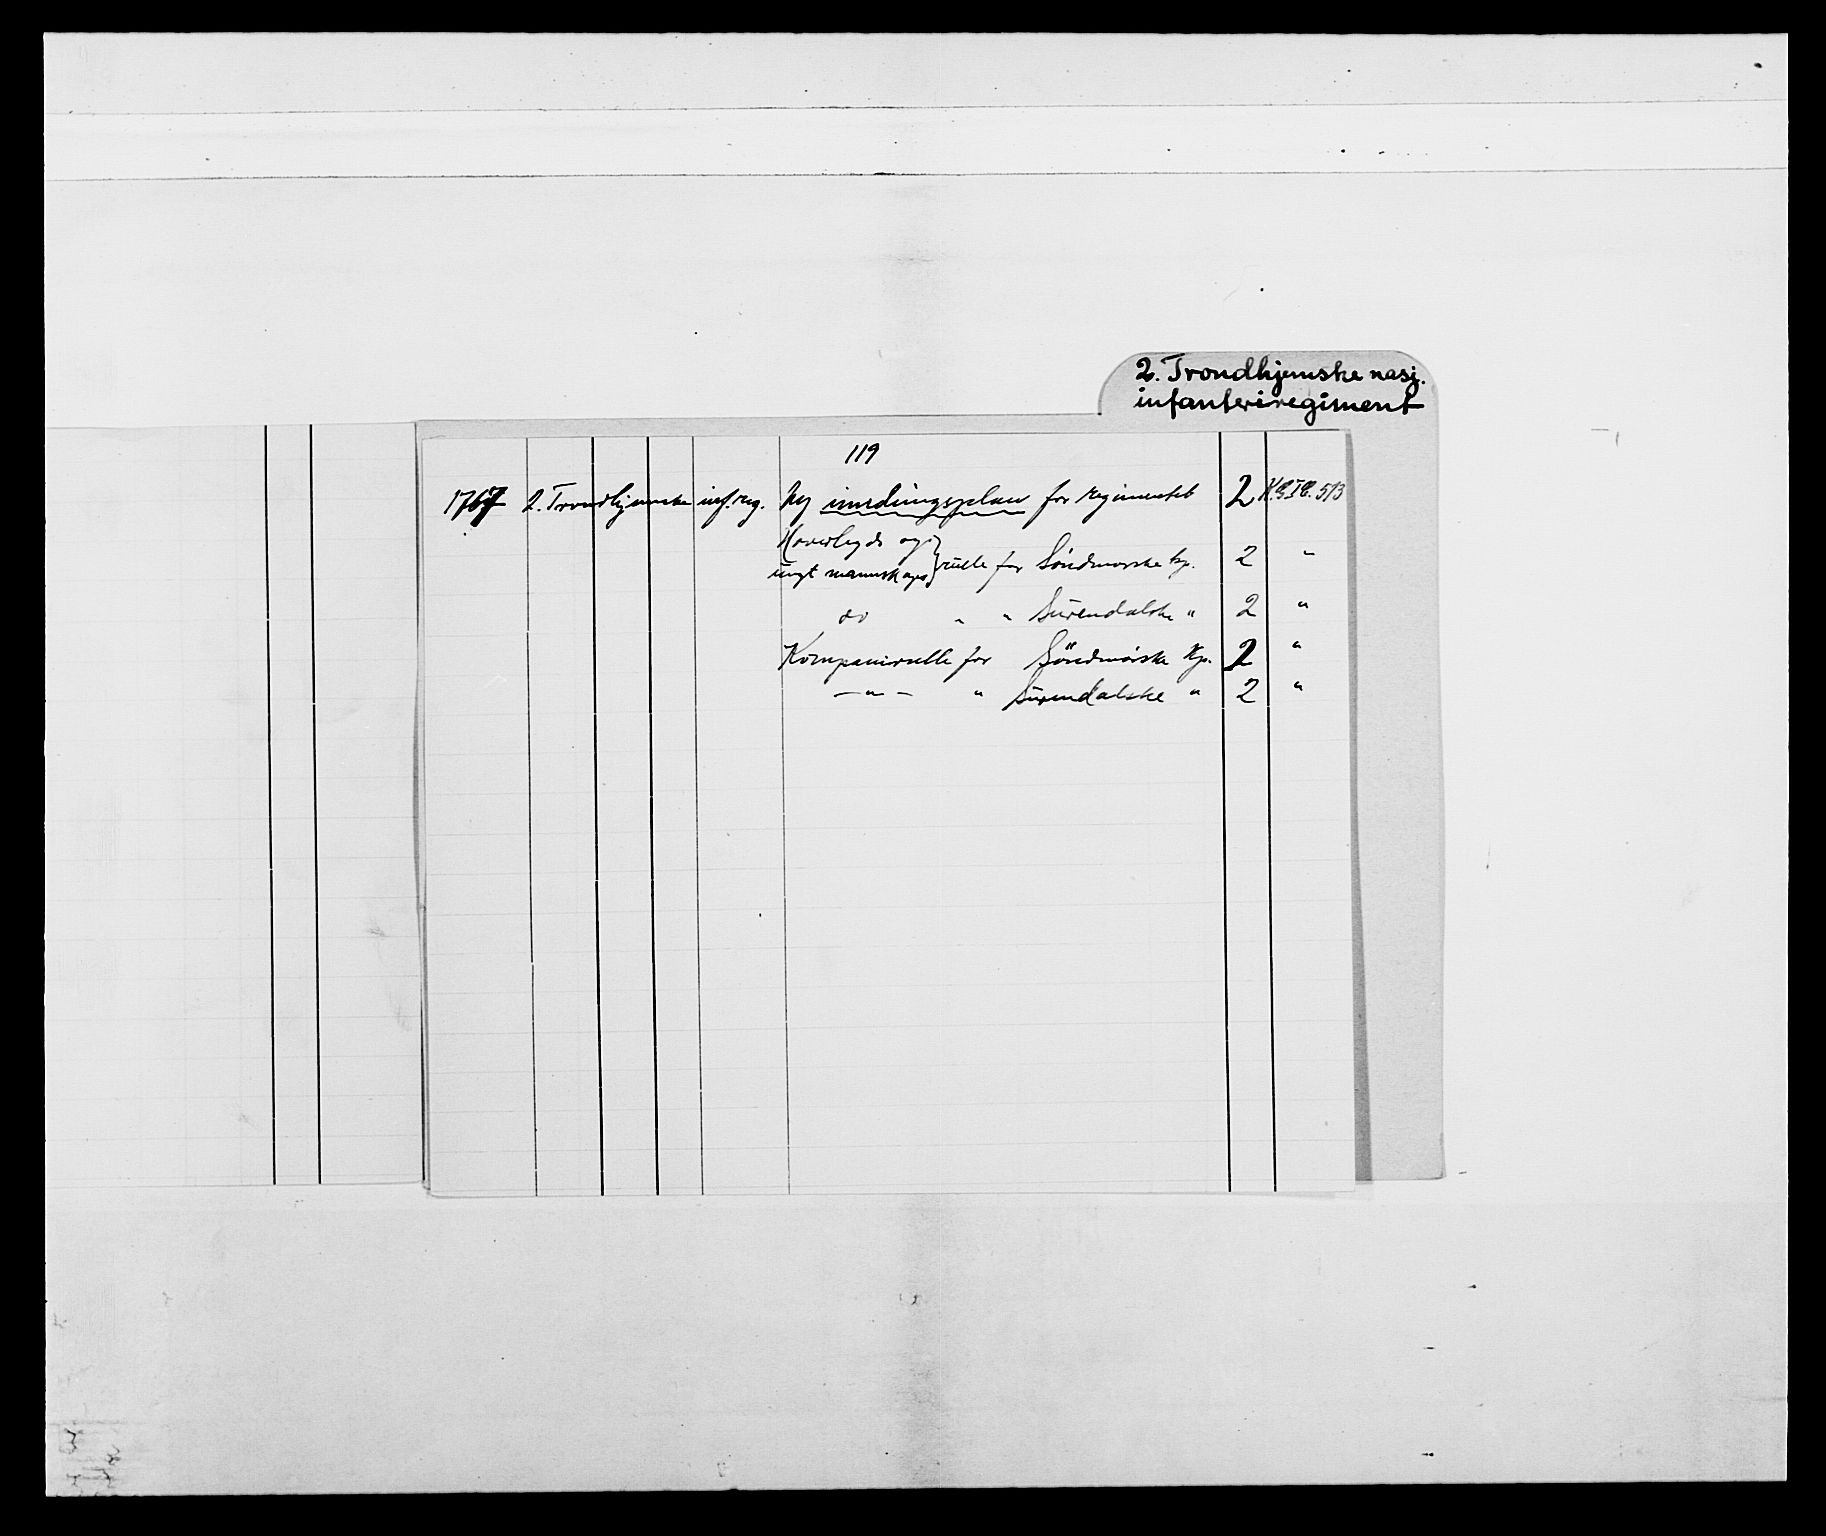 2. Trondhjemske nasj.
infanteriregiment
119
1767 2. Trondhjemske inf. reg. Ny inndelingsplan for regimentet 2 K.G.I.C. 5/3
Hoverlegds og
ungt mannskaps } rulle for Söndmörske kp. 2 "
do " " Surendalske " 2 "
Kompanirulle for Söndmörske Kp. 2 "
— " — " Surendalske " 2 "